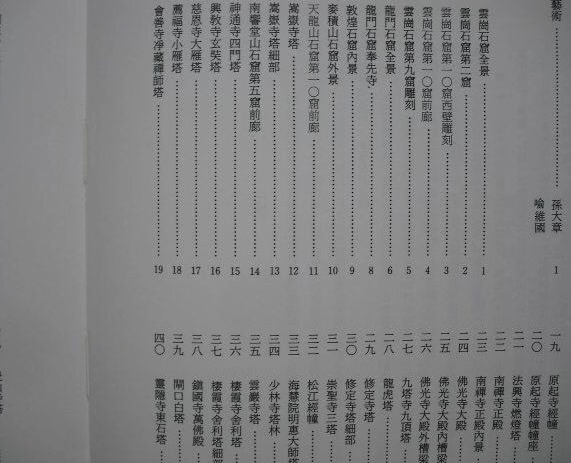 藝術 孫大章 1
喻維國
雲崗石窟全景 1
雲崗石窟第二窟 2
雲崗石窟第一〇窟西壁雕刻 3
雲崗石窟第一〇窟前廊 4
雲崗石窟第九窟雕刻 5
龍門石窟全景 6
龍門石窟奉先寺 8
敦煌石窟內景 9
麥積山石窟外景 10
天龍山石窟第一〇窟前廊 11
嵩嶽寺塔 12
嵩嶽寺塔細部 13
南響堂山石窟第五窟前廊 14
神通寺四門塔 15
興教寺玄奘塔 16
慈恩寺大雁塔 17
薦福寺小雁塔 18
會善寺净藏禪師塔 19
一九 原起寺經幢
二〇 原起寺經幢幢座
二一 法興寺燃燈塔
二二 南禪寺正殿
二三 南禪寺正殿內景
二四 佛光寺大殿
二五 佛光寺大殿內槽梁
二六 佛光寺大殿外槽梁
二七 九塔寺九頂塔
二八 龍虎塔
二九 修定寺塔
三〇 修定寺塔細部
三一 崇聖寺三塔
三二 松江經幢
三三 海慧院明惠大師塔
三四 少林寺塔林
三五 雲巖寺塔
三六 棲霞寺舍利塔
三七 棲霞寺舍利塔細部
三八 鎮國寺萬佛殿
三九 閘口白塔
四〇 靈隱寺東石塔